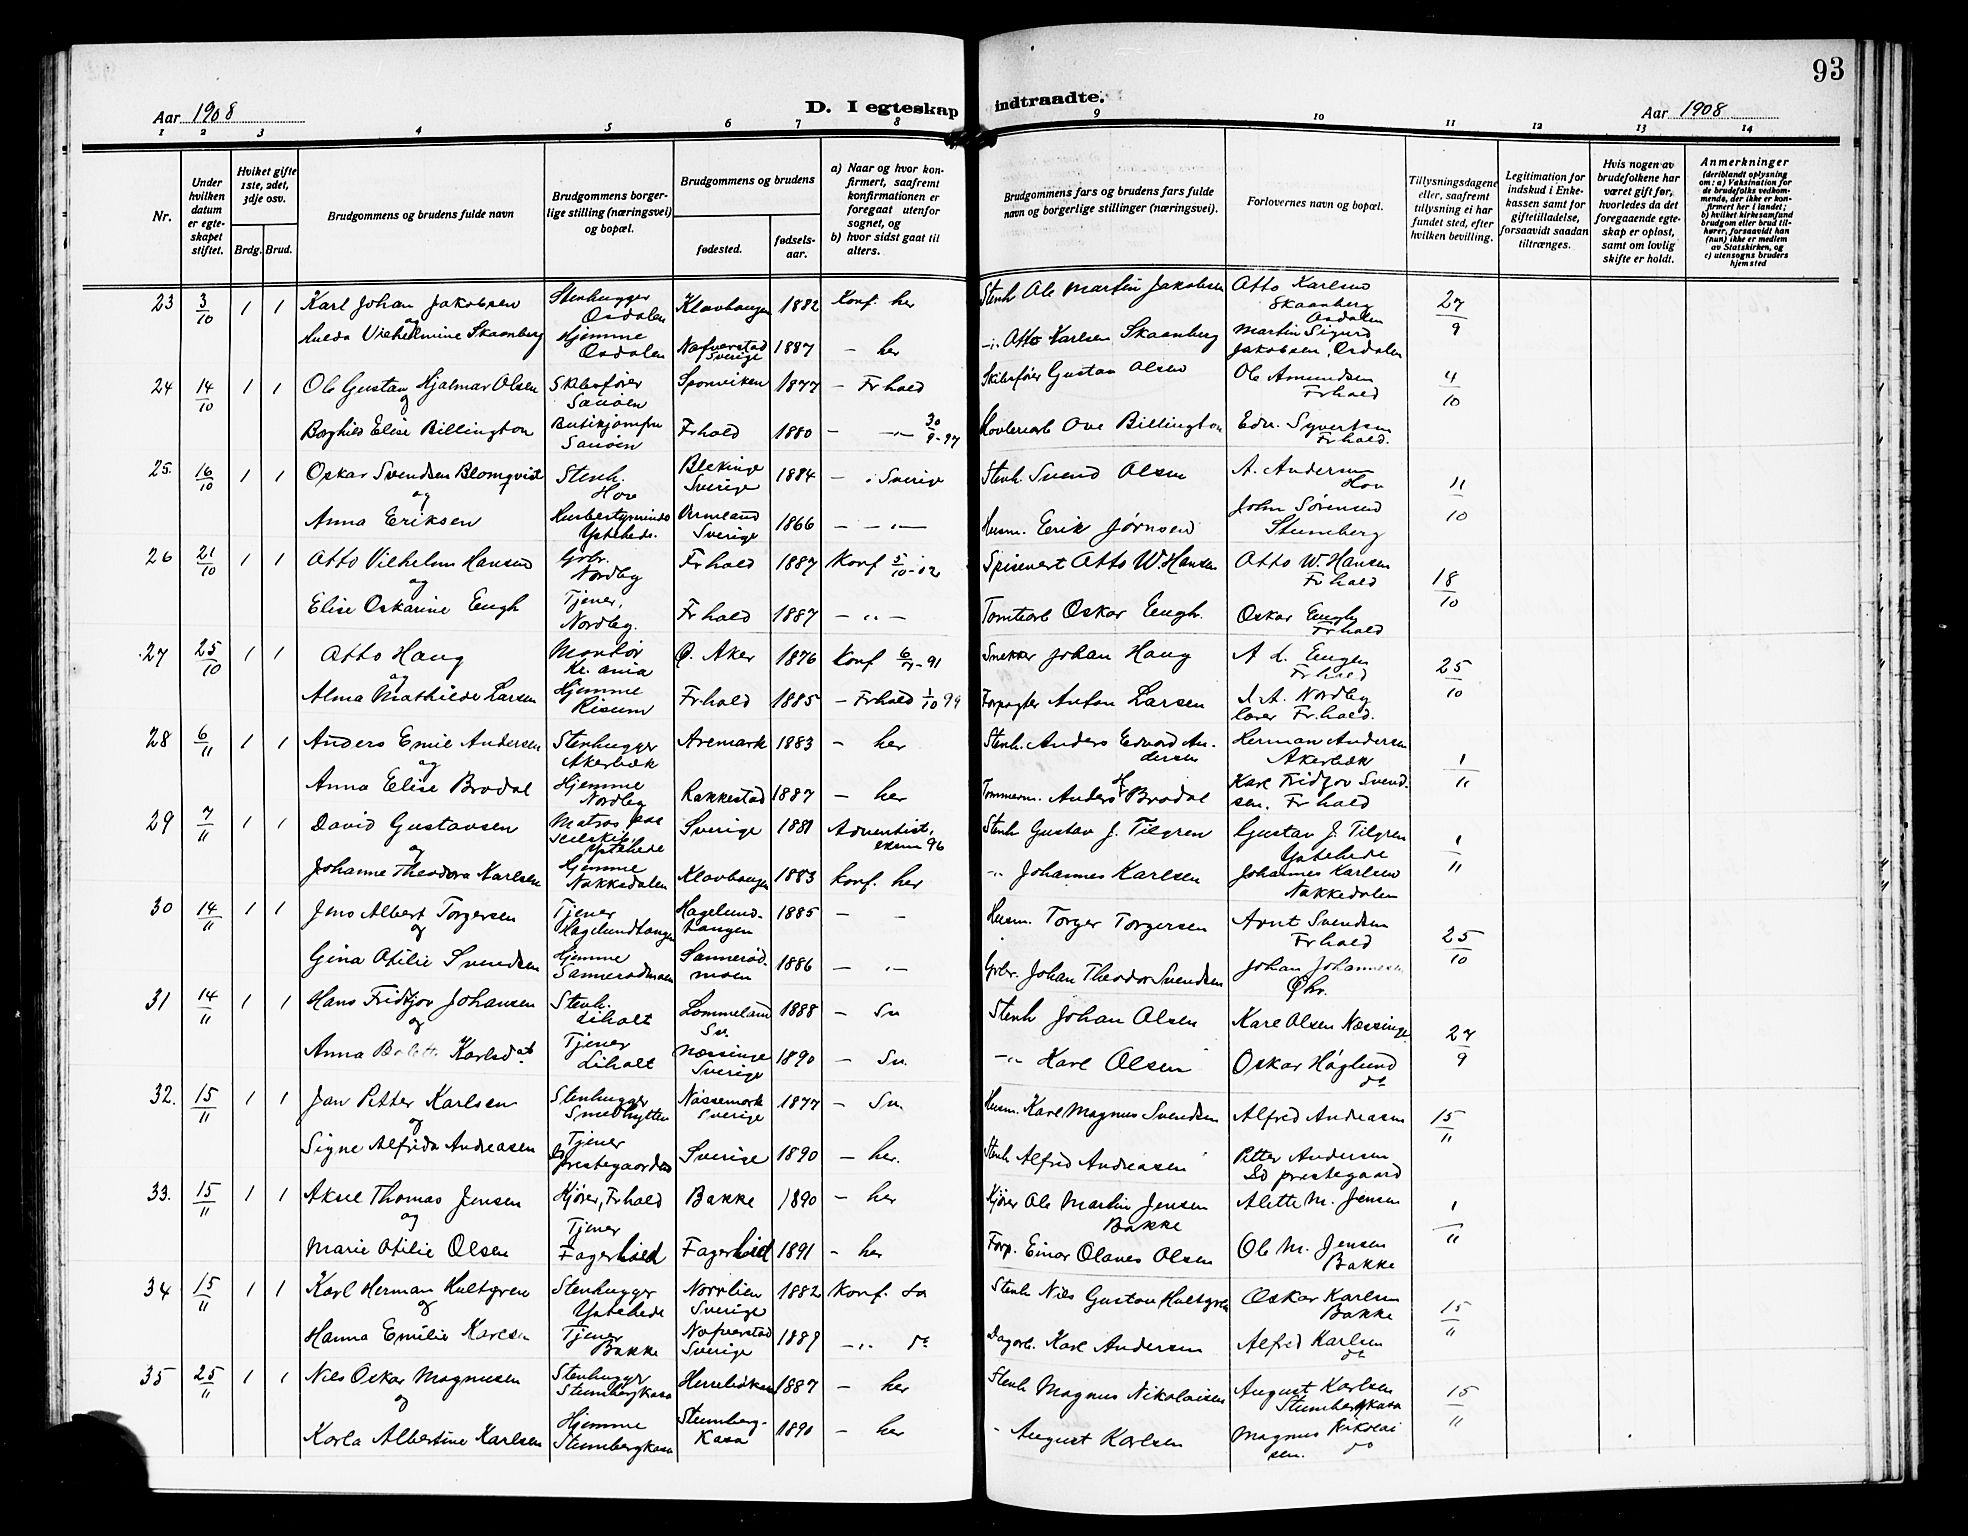 93
Aar 1908
D. I egteskap indtraadte.
Aar 1908
1 2 3 4 5 6 7 8 9 10 11 12 13 14
Nr.
Under hvilken datum er egteskapet stiftet.
Hviket gifte 1ste, 2det, 3dje osv.
Brdg. Brud.
Brudgommens og brudens fulde navn
Brudgommens borgerlige stilling (næringsvei) og bopæl.
Brudgommens og brudens
fødested.
fødselsaar.
a) Naar og hvor konfirmert, saafremt konfirmationen er foregaat utenfor sognet, og
b) hvor sidst gaat til alters.
Brudgommens fars og brudens fars fulde navn og borgerlige stillinger (næringsvei).
Forlovernes navn og bopæl.
Tillysningsdagene eller, saafremt tillysning ei har fundet sted, efter hvilken bevilling.
Legitimation for indskud i Enkekassen samt for giftetilladelse, forsaavidt saadan tiltrænges.
Hvis nogen av brudefolkene har været gift før, hvorledes da det foregaaende egteskap er opløst, samt om lovlig skifte er holdt.
Anmerkninger (deriblandt oplysning om: a) Vaksination for de brudefolks vedkommende, der ikke er konfirmert her i landet; b) hvilket kirkesamfund brudgom eller brud tilhører, forsaavidt han (hun) ikke er medlem av Statskirken, og c) utensogns bruders hjemsted
23 3/10 1 1 Karl Johan Jakobsen Stenhugger Osdalen Klavhaugen 1882 Konf. her Stenh Ole Martin Jakobsen Otto Karlsen Skaanberg Osdalen 27/9
og
Hulda Vilhelmine Skaanberg Hjemme Osdalen Nafverstad Sverige 1887 - her -"- Otto Karlsen Skaanberg Martin Sigurd Jakobsen, Osdalen
24 14/10 1 1 Ole Gustav Hjalmar Olsen Skibsfører Sauøen Sponviken 1877 - Fr.hald Skibsfører Gustav Olsen Ole Amundsen Fr hald 4/10
og
Borghild Elise Billington Butikjomfru Sauøen Fr.hald 1880 - -"- 30/9-94 Høvleriarb Ove Billington Edv. Syvertsen Fr hald.
25. 16/10 1 1 Oskar Svendsen Blomqvist Stenh. Hov Blekinge Sverige 1884 - i Sverige Stenh. Svend Olsen A. Andersen Hov 11/10
og
Anna Eriksen Husbestyrerinde Ystehede. Vermland Sverige 1866 - -"- Husm. Erik Jørnsen John Sørensen Stumberg
26 21/10 1 1 Otto Vilhelm Hansen Grbr. Nordby Fr hald 1887 Konf 5/10-02 Spisevert Otto W. Hansen Otto W. Hansen Fr hald 18/10
og
Elise Oskarine Eugh Tjener, Nordby. Fr hald 1887 - " - Tomtearb Oskar Eugh. Oskar Eugh Fr hald
27 25/10 1 1 Otto Haug Montør Kr. ania Ø. Aker 1876 Konf 6/9-91 Snekker Johan Haug A L. Eugen Fr hald 25/10
og
Alma Mathilde Larsen Hjemme Risum Fr.hald 1885 - Fr hald 1/10 99 Forpagter Anton Larsen L. A. Nordby lærer Fr. hald.
28 6/11 1 1 Anders Emil Andersen Stenhugger Akerbæk Aremark 1883 - her Stenh. Anders Edvard Andersen Herman Andersen Akerbæk 1/11
og
Anna Elise Brodal Hjemme Nordby Rakkestad 1887 - her Tømmerm. Anders H Brodal Karl Fridtjov Svendsen, Fr hald
29 7/11 1 1 David Gustavsen Matros paa seilskib, Ystehede Sverige 1881 Adventist, eksm 96 Stenh Gustav J. Tilgren Gustav J. Tilgren Ystehede 1/11
og
Johanne Theodora Karlsen Hjemme Nakkedalen Klavhaugen 1883 Konf. her -"- Johannes Karlsen Johannes Karlsen Nakkedalen
30 14/11 1 1 Jens Albert Torgersen Tjener Hagelundhaugen Hagelundhaugen 1885 - - Husm. Torger Torgersen Arnt Svendsen Fr hald 25/10
og
Gina Otilie Svendsen Hjemme Sannerødmoen Sannerødmoen 1886 - " - Grbr. Johan Theodor Svendsen Johan Johannesen
31 14/11 1 1 Hans Fridtjov Johansen Stenh. Liholt Lommeland Sv. 1888 - Sv Stenh Johan Olsen Karl Olsen Næssinge 27/9
og
Anna Karlsdat. Tjener Liholt Næssinge Sverige 1890 - Sv. -"- Karl Olsen Oskar Høglund do
32. 15/11 1 1 Jan Petter Karlsen Stenhugger Smedhytten Nössemark Sverige 1877 - Sv. Husm. Karl Magnus Svendsen Alfred Andreasen 15/11
og
Signe Alfrida Andreasen Tjener Id prestegaarden Sverige 1890 - her. Stenh Alfred Andreasen Petter Andersen Id prestegaard
33. 15/11 1 1 Aksel Thomas Jensen Kjører, Fr hald Bakke 1890 - her Kjører Ole Martin Jensen Bakke Alette M. Jensen 1/11
og
Marie Otilie Olsen Tjener Fagerholt Fagerholt 1891 - her Forp. Einar Olaves Olsen Ole M. Jensen Bakke
34 15/11 1 1 Karl Herman Hultgren Stenhugger Ystehede Norrlien Sverige 1882 Konf. Sv Stenh Nils Gustav Hultgren Oskar Karlsen Bakke 15/11
og
Hanna Emilie Karlsen Tjener Bakke Nafverstad Sverige 1889 -"- do Dagarb. Karl Andersen Alfred Karlsen do
35 25/11 1 1 Nils Oskar Magnusen Stenhugger Stumbergkasa Herrebøkasa 1887 - her Stenh Magnus Nikolaisen August Karlsen Stumbergkasa 15/11
og
Karla Albertine Karlsen Hjemme Stumbergkasa Stumbergkasa 1890 - her - August Karlsen Magnus Nikolaisen. do